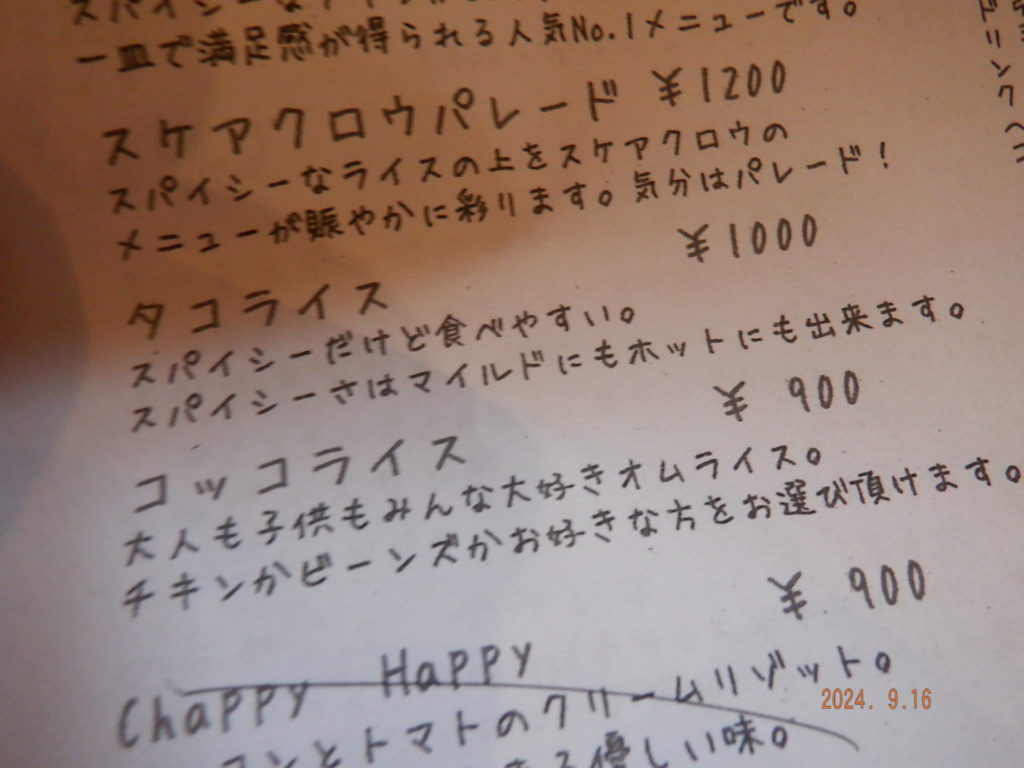 スパイシーな
一皿で満足感が得られる人気No.1メニューです。
スケアクロウパレード ¥1200
スパイシーなライスの上をスケアクロウの
メニューが賑やかに彩ります。気分はパレード!
タコライス ¥1000
スパイシーだけど食べやすい。
スパイシーさはマイルドにもホットにも出来ます。
コッコライス ¥900
大人も子供もみんな大好きオムライス。
チキンかビーンズかお好きな方をお選び頂けます。
Chappy Happy ¥900
コンとトマトのクリームリゾット。
優しい味。
ドリンク
2024. 9.16